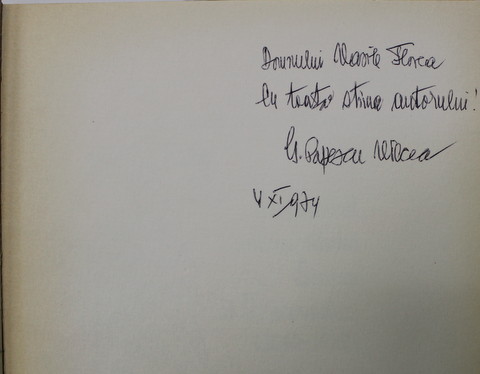 Domnului Vasile Florea
Cu toată stima autorului!
G. Popescu Vîlcea
V XI 1974